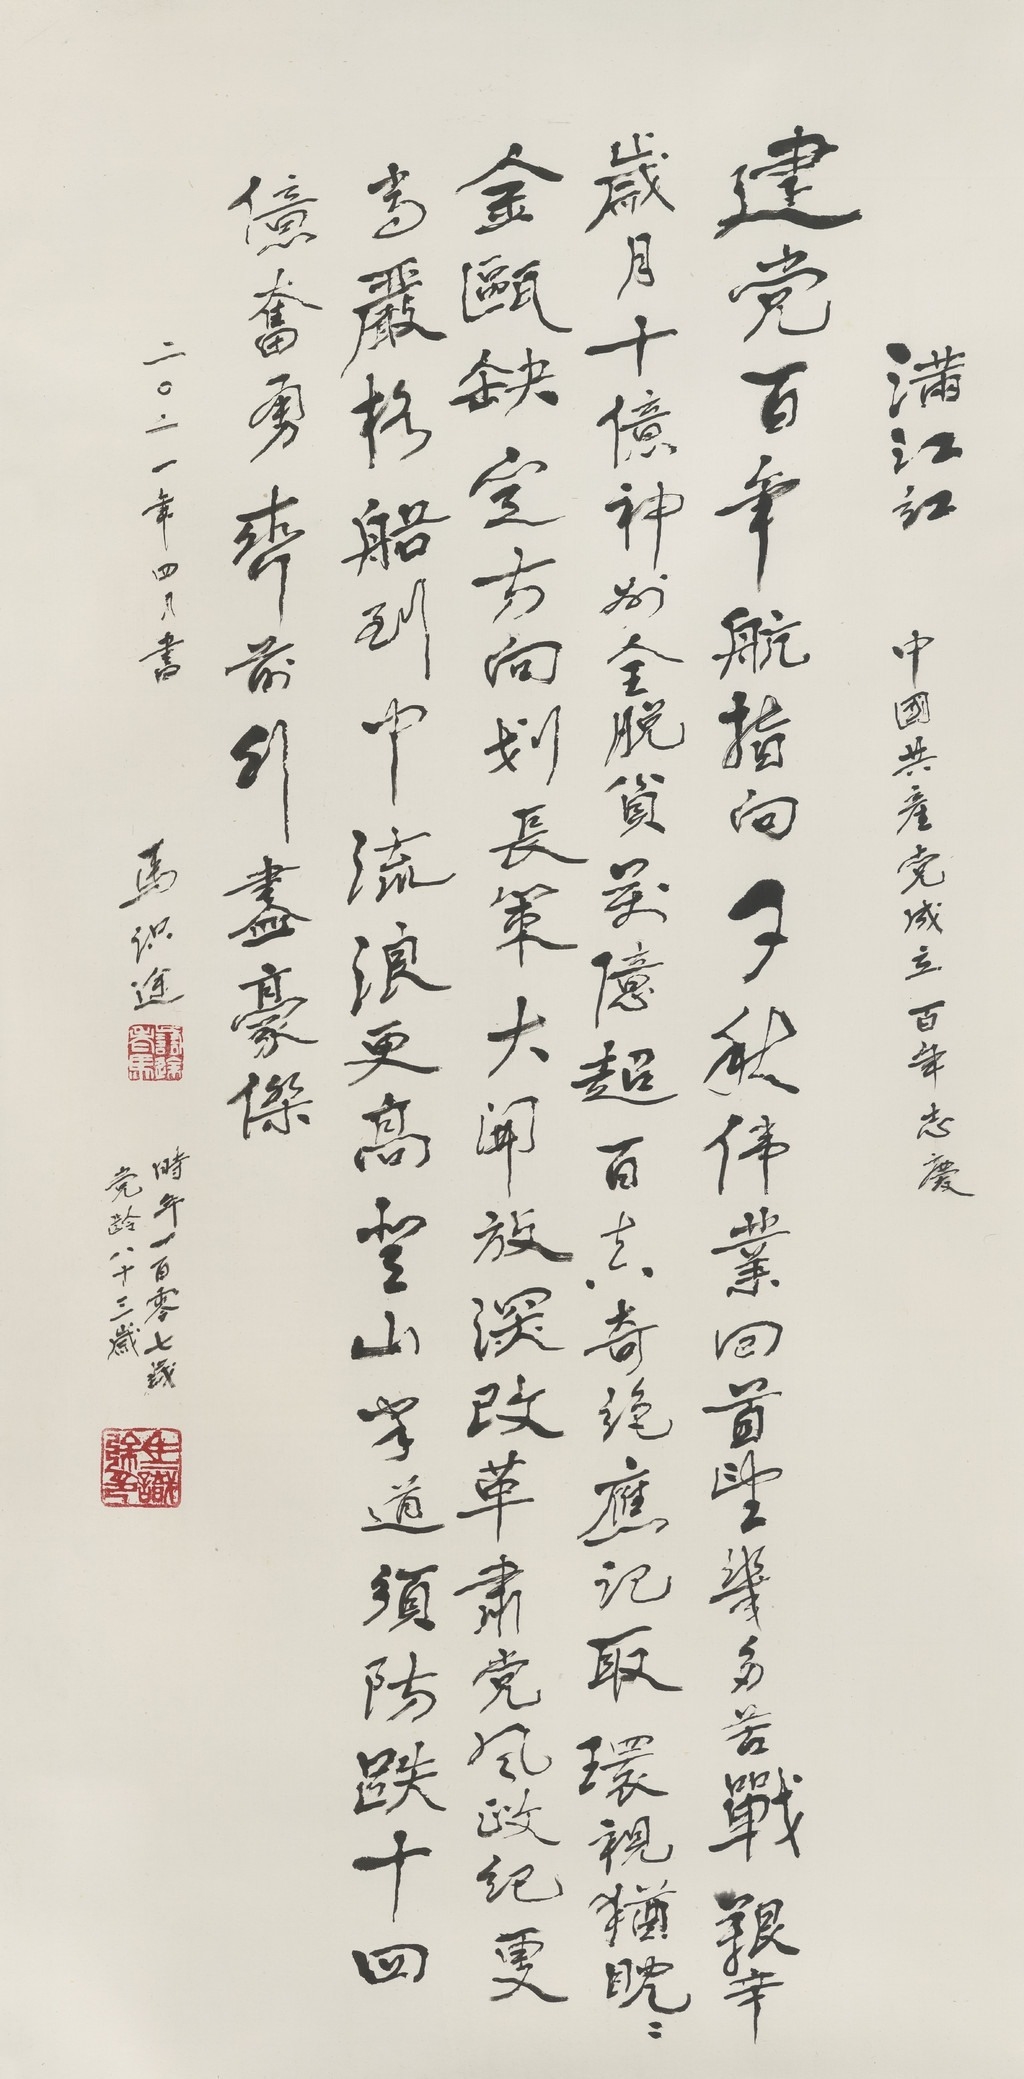 滿江红 中國共產党成立百年志慶
建党百年航指向千秋伟業回首望幾多苦戰艱辛
歲月十億神州全脱貧萬億超百真奇绝應记取環視猶眈〻
金甌缺定方向划長策大開放深改革肅党风政纪更
当嚴格船到中流浪更高登山半道須防跌十四
億奮勇齊前列盡豪傑
二〇二一年四月書 馬识途
時年一百零七歲
党龄八十三歲